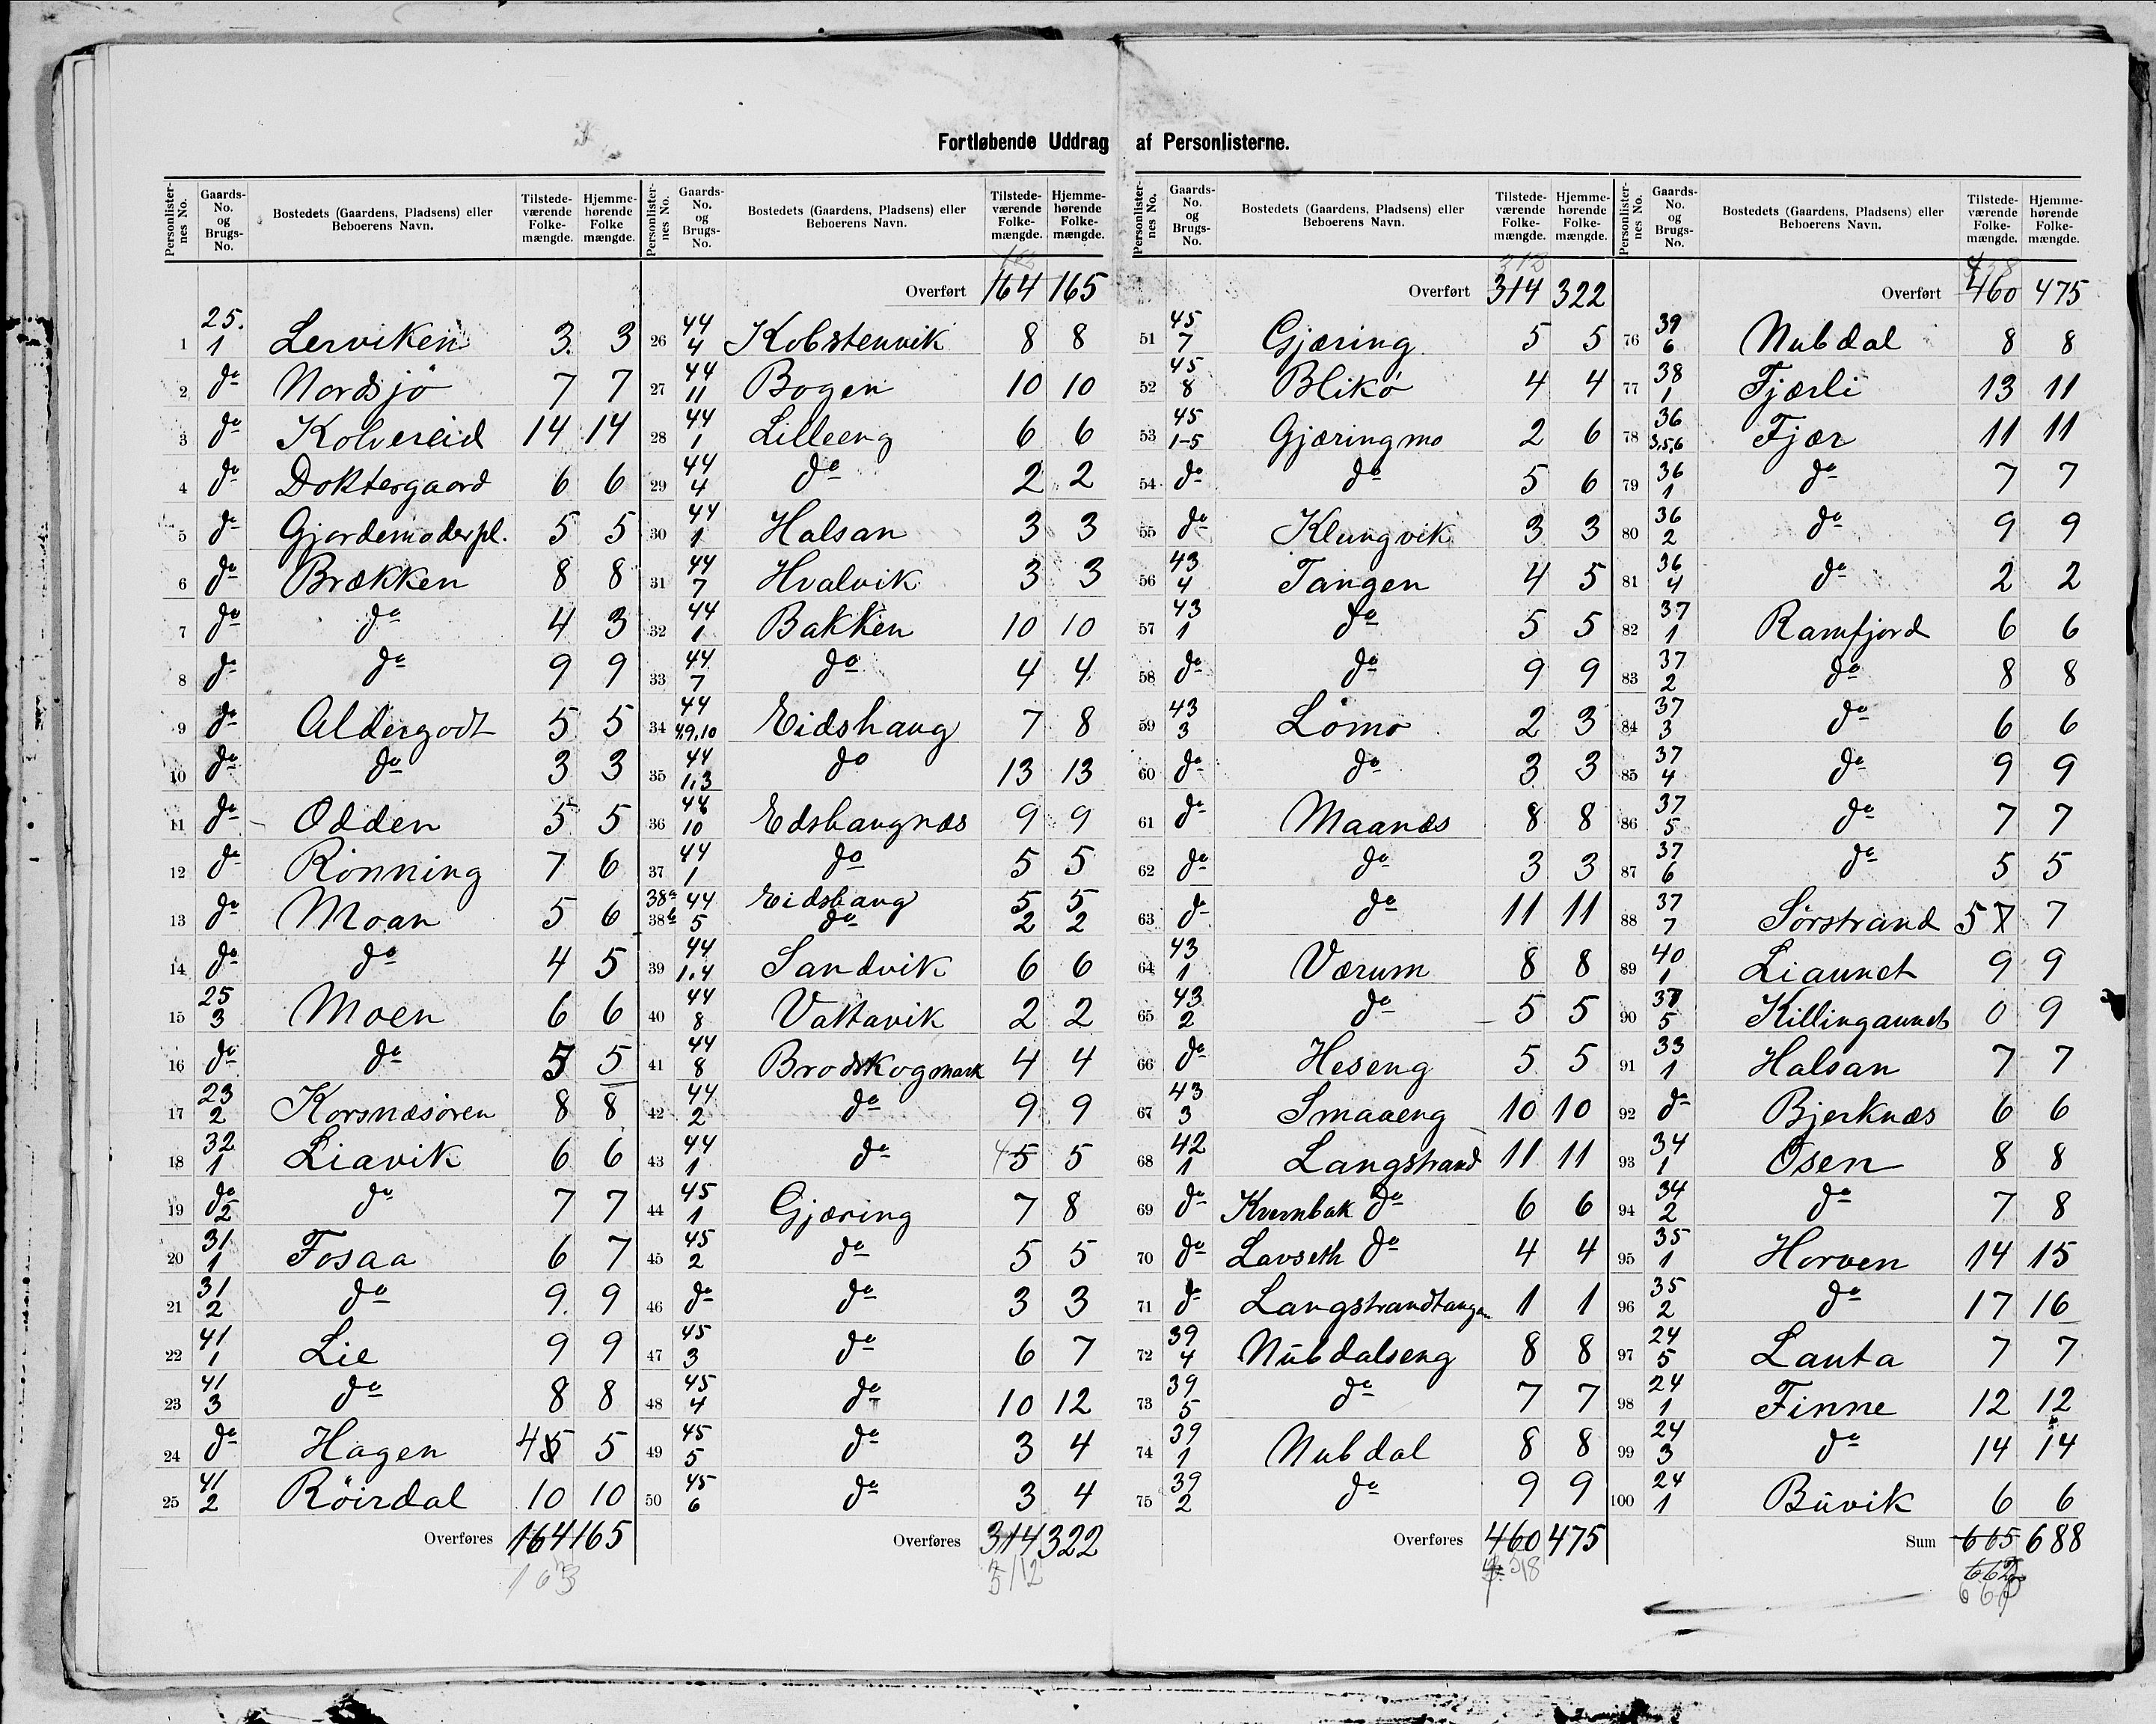 Fortløbende Uddrag af Personlisterne.
Personlisternes No. Gaards-No. og Brugs-No. Bostedets (Gaardens, Pladsens) eller Beboerens Navn. Tilstedeværende Folkemængde. Hjemmehørende Folkemængde.
1 25. 1 Lerviken 3 3
2 do Nordsjö 7 7
3 do Kolvereid 14 14
4 do Doktergaard 6 6
5 do Gjordemoderpl. 5 5
6 do Brækken 8 8
7 do do 4 3
8 do do 9 9
9 do Aldergodt 5 5
10 do do 3 3
11 do Odden 5 5
12 do Rönning 7 6
13 do Moan 5 6
14 do do 4 5
15 25 3 Moen 6 6
16 do do 5 5
17 23 2 Korsnæsören 8 8
18 32 1 Liavik 6 6
19 do 2 do 7 7
20 31 1 Fosaa 6 7
21 31 2 do 9 9
22 41 1 Lie 9 9
23 41 3 do 8 8
24 do Hagen 4 5 5
25 41 2 Röirdal 10 10
Overføres 164 165
163
Personlisternes No. Gaards-No. og Brugs-No. Bostedets (Gaardens, Pladsens) eller Beboerens Navn. Tilstedeværende Folkemængde. Hjemmehørende Folkemængde.
Overført 164 165
26 44 4 Kobstenvik 8 8
27 44 11 Bogen 10 10
28 44 1 Lilleeng 6 6
29 44 4 do 2 2
30 44 1 Halsan 3 3
31 44 7 Hvalvik 3 3
32 44 1 Bakken 10 10
33 44 7 do 4 4
34 44 4,9,10 Eidshaug 7 8
35 44 1,3 do 13 13
36 44 10 Edshaugnæs 9 9
37 44 1 do 5 5
38a 44 Eidshaug 5 5
38b 5 do 2 2
39 44 1,4 Sandvik 6 6
40 44 8 Vattavik 2 2
41 44 8 Brodskogmark 4 4
42 44 2 do 9 9
43 44 1 do 4 5 5
44 45 1 Gjæring 7 8
45 45 2 do 5 5
46 do do 3 3
47 45 3 do 6 7
48 45 4 do 10 12
49 45 5 do 3 4
50 45 6 do 3 4
Overføres 314 322
312
Personlisternes No. Gaards-No. og Brugs-No. Bostedets (Gaardens, Pladsens) eller Beboerens Navn. Tilstedeværende Folkemængde. Hjemmehørende Folkemængde.
312
Overført 314 322
51 45 7 Gjæring 5 5
52 45 8 Blikö 4 4
53 45 1-5 Gjæringmo 2 6
54 do do 5 6
55 do Klungvik 3 3
56 43 4 Tangen 4 5
57 43 1 do 5 5
58 do do 9 9
59 43 3 Lömo 2 3
60 do do 3 3
61 do Maanæs 8 8
62 do do 3 3
63 do do 11 11
64 43 1 Værum 8 8
65 43 2 do 5 5
66 do Heseng 5 5
67 43 3 Smaaeng 10 10
68 42 1 Langstrand 11 11
69 do Kvernbak do 6 6
70 do Lavseth do 4 4
71 do Langstrandtangen 1 1
72 39 4 Nubdalseng 8 8
73 39 5 do 7 7
74 39 1 Nubdal 8 8
75 39 2 do 9 9
Overføres 460 475
Personlisternes No. Gaards-No. og Brugs-No. Bostedets (Gaardens, Pladsens) eller Beboerens Navn. Tilstedeværende Folkemængde. Hjemmehørende Folkemængde.
458
Overført 460 475
76 39 6 Nubdal 8 8
77 38 1 Fjærli 13 11
78 36 3,5,6 Fjær 11 11
79 36 1 do 7 7
80 36 2 do 9 9
81 36 4 do 2 2
82 37 1 Ramfjord 6 6
83 37 2 do 8 8
84 37 3 do 6 6
85 37 4 do 9 9
86 37 5 do 7 7
87 37 6 do 5 5
88 37 7 Sörstrand 5 7 7
89 40 1 Liaunet 9 9
90 37 5 Killingaunet 0 9
91 33 1 Halsan 7 7
92 do Bjerknæs 6 6
93 34 1 Osen 8 8
94 34 2 do 7 8
95 35 1 Horven 14 15
96 35 2 do 17 16
97 24 5 Lauta 7 7
98 24 1 Finne 12 12
99 24 3 do 14 14
100 24 1 Buvik 6 6
Sum 665 688